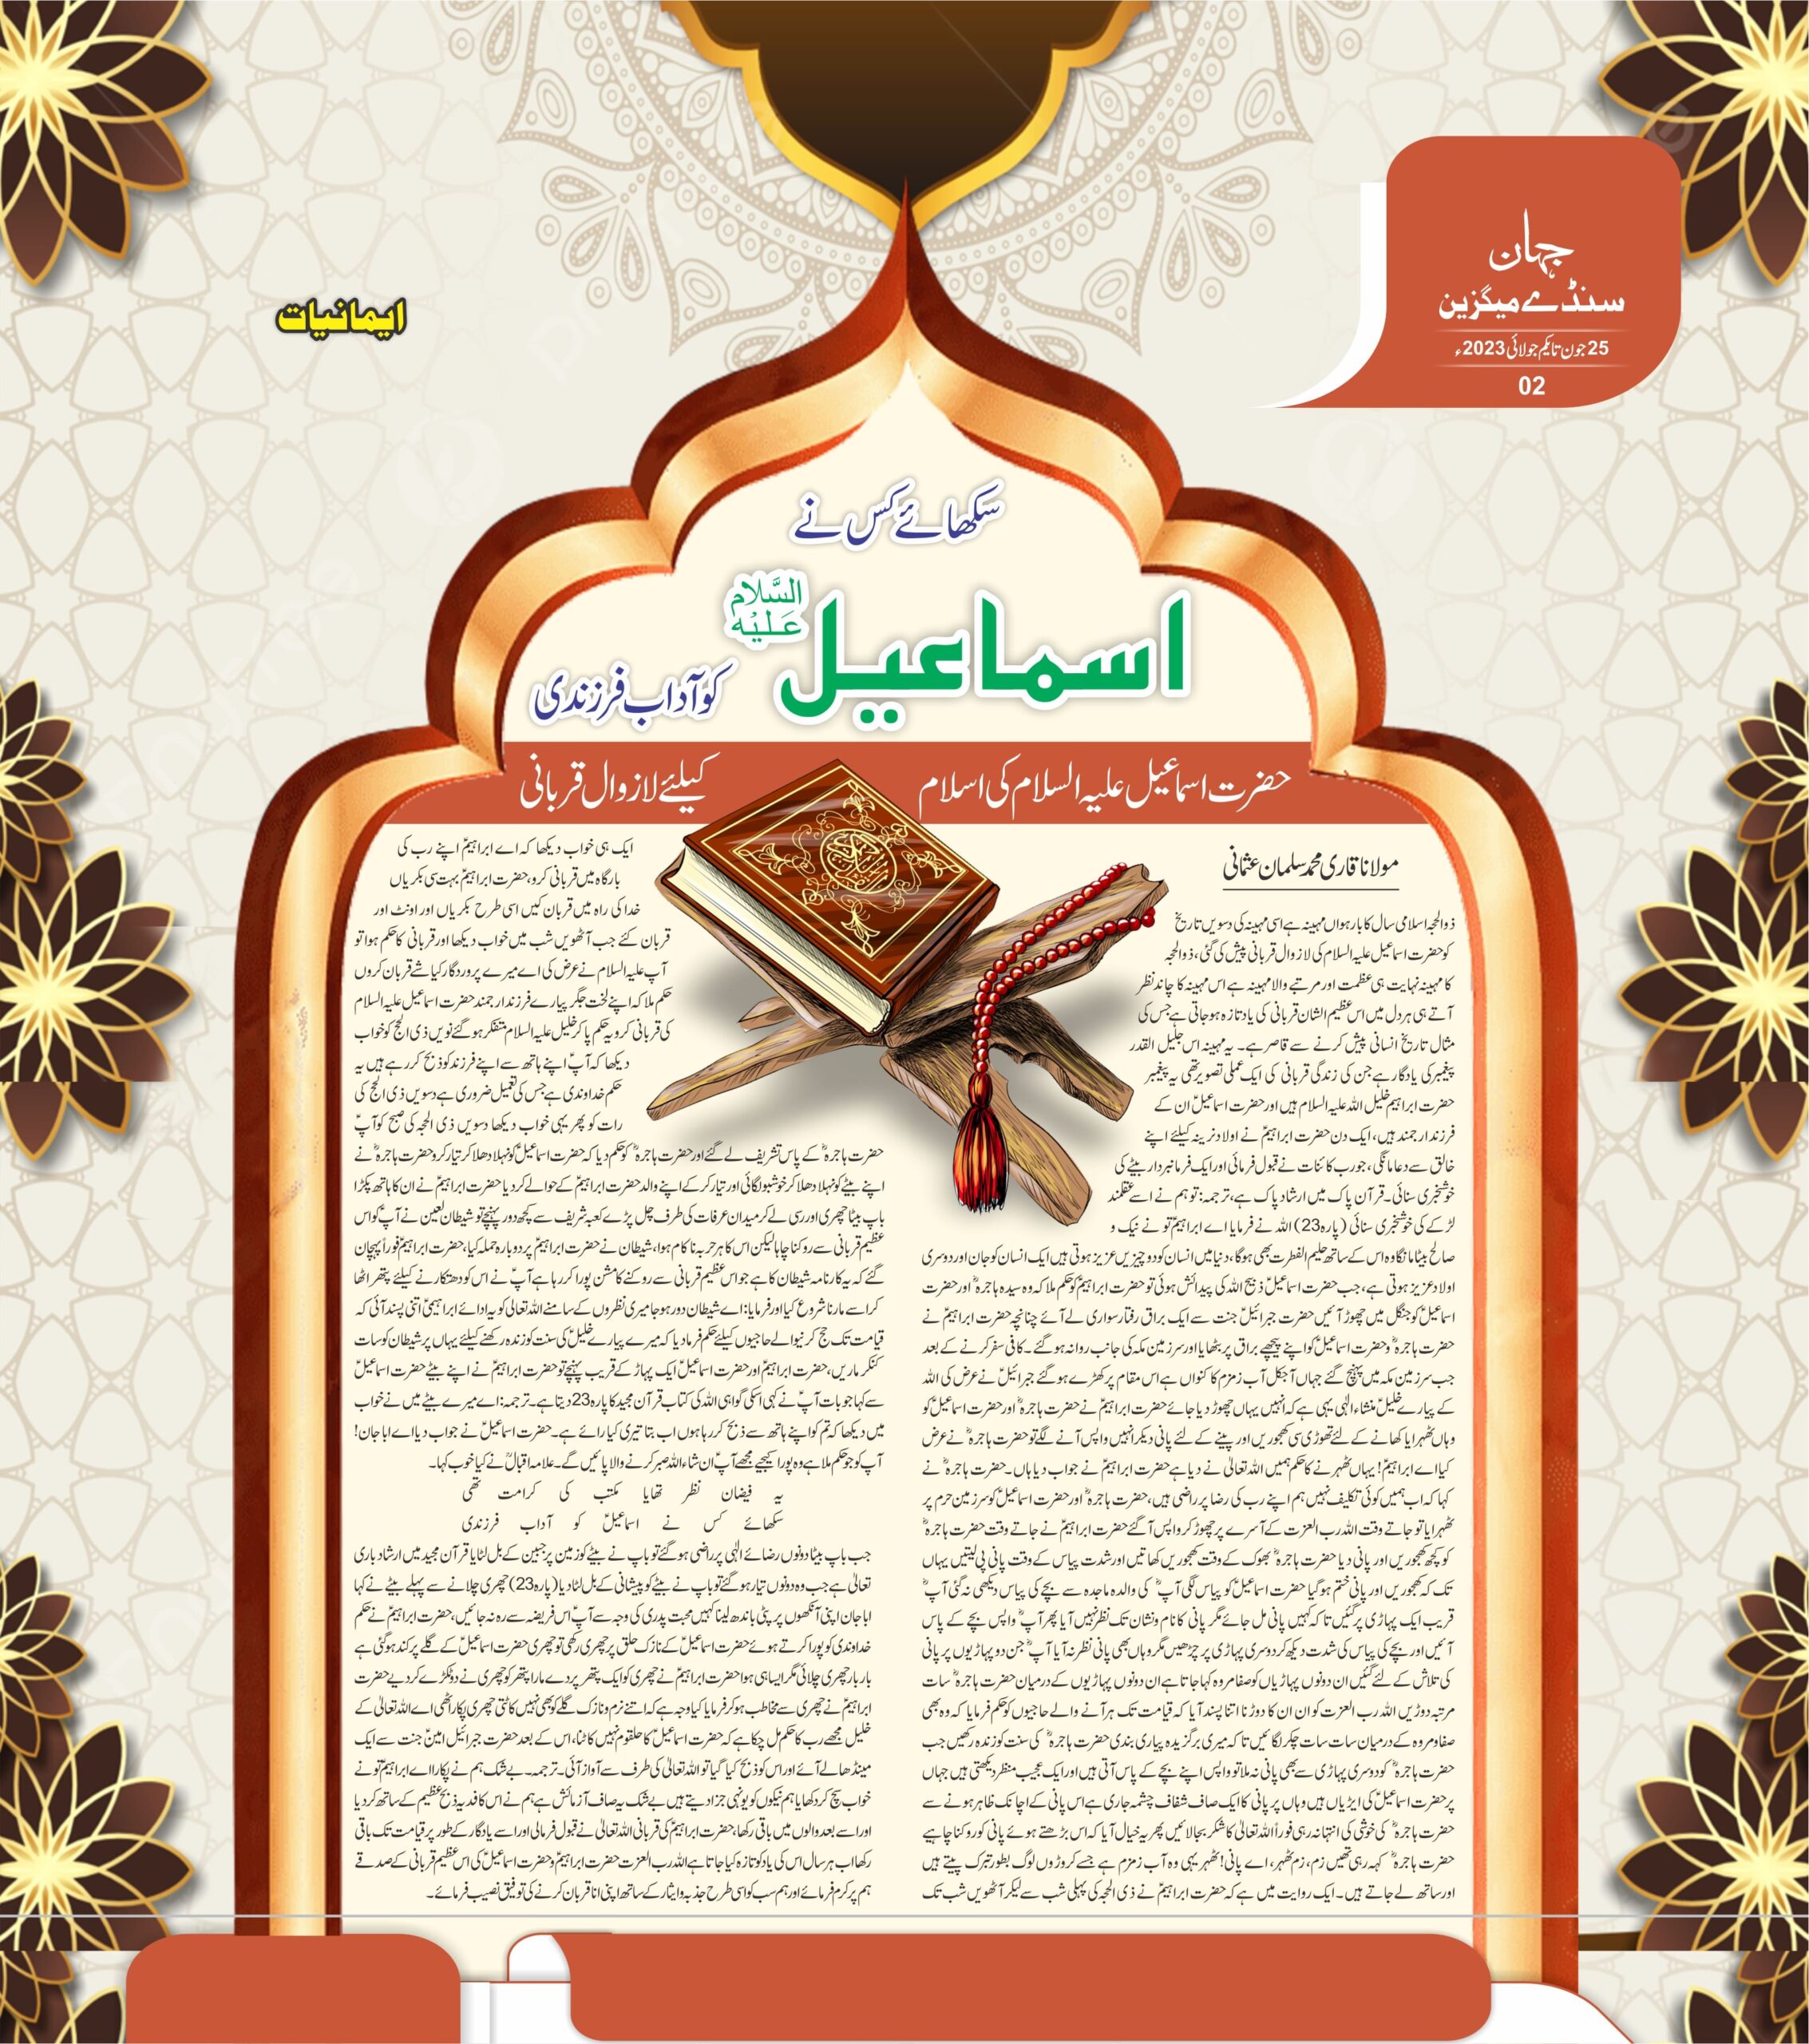 جہان
سنڈے میگزین
25 جون تا یکم جولائی 2023ء
02
ایمانیات
سکھائے کس نے
اسماعیل علیہ السلام
کو آداب فرزندی
حضرت اسماعیل علیہ السلام کی اسلام کیلئے لازوال قربانی
مولانا قاری محمد سلمان عثمانی
ذوالحجہ اسلامی سال کا بارہواں مہینہ ہے اسی مہینہ کی دسویں تاریخ
کو حضرت اسماعیل علیہ السلام کی لازوال قربانی پیش کی گئی، ذوالحجہ
کا مہینہ نہایت ہی عظمت اور مرتبے والا مہینہ ہے اس مہینہ کا چاند نظر
آتے ہی ہر دل میں اس عظیم الشان قربانی کی یاد تازہ ہو جاتی ہے جس کی
مثال تاریخ انسانی پیش کرنے سے قاصر ہے۔ یہ مہینہ اس جلیل القدر
پیغمبر کی یادگار ہے جن کی زندگی قربانی کی ایک عملی تصویر تھی یہ پیغمبر
حضرت ابراہیم خلیل اللہ علیہ السلام ہیں اور حضرت اسماعیلؑ ان کے
فرزند ارجمند ہیں، ایک دن حضرت ابراہیمؑ نے اولاد نرینہ کیلئے اپنے
خالق سے دعا مانگی، جو رب کائنات نے قبول فرمائی اور ایک فرمانبردار بیٹے کی
خوشخبری سنائی۔ قرآن پاک میں ارشاد پاک ہے، ترجمہ: تو ہم نے اسے عقلمند
لڑکے کی خوشخبری سنائی (پارہ 23) اللہ نے فرمایا اے ابراہیمؑ تو نے نیک و
صالح بیٹا مانگا وہ اس کے ساتھ حلیم الفطرت بھی ہوگا، دنیا میں انسان کو دو چیزیں عزیز ہوتی ہیں ایک انسان کو جان اور دوسری
اولاد عزیز ہوتی ہے، جب حضرت اسماعیلؑ ذبیح اللہ کی پیدائش ہوئی تو حضرت ابراہیمؑ کو حکم ملا کہ وہ سیدہ ہاجرہؓ اور حضرت
اسماعیلؑ کو جنگل میں چھوڑ آئیں حضرت جبرائیلؑ جنت سے ایک براق رفتار سواری لے آئے چنانچہ حضرت ابراہیمؑ نے
حضرت ہاجرہؓ و حضرت اسماعیلؑ کو اپنے پیچھے براق پر بٹھایا اور سرزمین مکہ کی جانب روانہ ہو گئے۔ کافی سفر کرنے کے بعد
جب سرزمین مکہ میں پہنچ گئے جہاں آجکل آب زمزم کا کنواں ہے اس مقام پر کھڑے ہو گئے جبرائیلؑ نے عرض کی اللہ
کے پیارے خلیلؑ منشاء الٰہی یہی ہے کہ انہیں یہاں چھوڑ دیا جائے حضرت ابراہیمؑ نے حضرت ہاجرہؓ اور حضرت اسماعیلؑ کو
وہاں ٹھہرایا کھانے کے لئے تھوڑی سی کھجوریں اور پینے کے لئے پانی دیکر انہیں واپس آنے لگے تو حضرت ہاجرہؓ نے عرض
کیا اے ابراہیمؑ! یہاں ٹھہرنے کا حکم ہمیں اللہ تعالیٰ نے دیا ہے حضرت ابراہیمؑ نے جواب دیا ہاں۔ حضرت ہاجرہؓ نے
کہا کہ اب ہمیں کوئی تکلیف نہیں ہم اپنے رب کی رضا پر راضی ہیں، حضرت ہاجرہؓ اور حضرت اسماعیلؑ کو سرزمین حرم پر
ٹھہرایا تو جاتے وقت اللہ رب العزت کے آسرے پر چھوڑ کر واپس آ گئے حضرت ابراہیمؑ نے جاتے وقت حضرت ہاجرہؓ
کو کچھ کھجوریں اور پانی دیا حضرت ہاجرہؓ بھوک کے وقت کھجوریں کھاتیں اور شدت پیاس کے وقت پانی پی لیتیں یہاں
تک کہ کھجوریں اور پانی ختم ہو گیا حضرت اسماعیلؑ کو پیاس لگی آپؓ کی والدہ ماجدہ سے بچے کی پیاس دیکھی نہ گئی آپؓ
قریب ایک پہاڑی پر گئیں تا کہ کہیں پانی مل جائے مگر پانی کا نام و نشان تک نظر نہیں آیا پھر آپؓ واپس بچے کے پاس
آئیں اور بچے کی پیاس کی شدت دیکھ کر دوسری پہاڑی پر چڑھیں مگر وہاں بھی پانی نظر نہ آیا آپؓ جن دو پہاڑیوں پر پانی
کی تلاش کے لئے گئیں ان دونوں پہاڑیاں کو صفا مروہ کہا جاتا ہے ان دونوں پہاڑیوں کے درمیان حضرت ہاجرہؓ سات
مرتبہ دوڑیں اللہ رب العزت کو ان کا دوڑنا اتنا پسند آیا کہ قیامت تک ہر آنے والے حاجیوں کو حکم فرمایا کہ وہ بھی
صفا و مروہ کے درمیان سات سات چکر لگائیں تا کہ میری برگزیدہ پیاری بندی حضرت ہاجرہؓ کی سنت کو زندہ رکھیں جب
حضرت ہاجرہؓ کو دوسری پہاڑی سے بھی پانی نہ ملا تو واپس اپنے بچے کے پاس آتی ہیں اور ایک عجیب منظر دیکھتی ہیں جہاں
پر حضرت اسماعیلؑ کی ایڑیاں ہیں وہاں پر پانی کا ایک صاف شفاف چشمہ جاری ہے اس پانی کے اچانک ظاہر ہونے سے
حضرت ہاجرہؓ کی خوشی کی انتہا نہ رہی فوراً اللہ تعالیٰ کا شکر بجا لائیں پھر یہ خیال آیا کہ اس بڑھتے ہوئے پانی کو روکنا چاہیے
حضرت ہاجرہؓ کہہ رہی تھیں زم، زم ٹھہر، اے پانی! ٹھہر یہی وہ آب زمزم ہے جسے کروڑوں لوگ بطور تبرک پیتے ہیں
اور ساتھ لے جاتے ہیں۔ ایک روایت میں ہے کہ حضرت ابراہیمؑ نے ذی الحجہ کی پہلی شب سے لیکر آٹھویں شب تک
ایک ہی خواب دیکھا کہ اے ابراہیمؑ اپنے رب کی
بارگاہ میں قربانی کرو، حضرت ابراہیمؑ بہت سی بکریاں
خدا کی راہ میں قربان کیں اسی طرح بکریاں اور اونٹ اور
قربان کئے جب آٹھویں شب میں خواب دیکھا اور قربانی کا حکم ہوا تو
آپ علیہ السلام نے عرض کی اے میرے پروردگار کیا شے قربان کروں
حکم ملا کہ اپنے لخت جگر پیارے فرزند ارجمند حضرت اسماعیل علیہ السلام
کی قربانی کرو یہ حکم پا کر خلیل علیہ السلام متفکر ہو گئے نویں ذی الحج کو خواب
دیکھا کہ آپؑ اپنے ہاتھ سے اپنے فرزند کو ذبح کر رہے ہیں یہ
حکم خداوندی ہے جس کی تعمیل ضروری ہے دسویں ذی الحج کی
رات کو پھر یہی خواب دیکھا دسویں ذی الحجہ کی صبح کو آپؑ
حضرت ہاجرہؓ کے پاس تشریف لے گئے اور حضرت ہاجرہؓ کو حکم دیا کہ حضرت اسماعیلؑ کو نہلا دھلا کر تیار کرو حضرت ہاجرہؓ نے
اپنے بیٹے کو نہلا دھلا کر خوشبو لگائی اور تیار کر کے اپنے والد حضرت ابراہیمؑ کے حوالے کر دیا حضرت ابراہیمؑ نے ان کا ہاتھ پکڑا
باپ بیٹا چھری اور رسی لے کر میدان عرفات کی طرف چل پڑے کعبہ شریف سے کچھ دور پہنچے تو شیطان لعین نے آپؑ کو اس
عظیم قربانی سے روکنا چاہا لیکن اس کا ہر حربہ ناکام ہوا، شیطان نے حضرت ابراہیمؑ پر دوبارہ حملہ کیا، حضرت ابراہیمؑ فوراً پہچان
گئے کہ یہ کارنامہ شیطان کا ہے جو اس عظیم قربانی سے روکنے کا مشن پورا کر رہا ہے آپؑ نے اس کو دھتکارنے کیلئے پتھر اٹھا
کر اسے مارنا شروع کیا اور فرمایا: اے شیطان دور ہو جا میری نظروں کے سامنے اللہ تعالیٰ کو یہ ادائے ابراہیمیؑ اتنی پسند آئی کہ
قیامت تک حج کرنیوالے حاجیوں کیلئے حکم فرما دیا کہ میرے پیارے خلیلؑ کی سنت کو زندہ رکھنے کیلئے یہاں پر شیطان کو سات
کنکر ماریں، حضرت ابراہیمؑ اور حضرت اسماعیلؑ ایک پہاڑ کے قریب پہنچے تو حضرت ابراہیمؑ نے اپنے بیٹے حضرت اسماعیلؑ
سے کہا جو بات آپؑ نے کہی اسکی گواہی اللہ کی کتاب قرآن مجید کا پارہ 23 دیتا ہے۔ ترجمہ: اے میرے بیٹے میں نے خواب
میں دیکھا کہ تم کو اپنے ہاتھ سے ذبح کر رہا ہوں اب بتا تیری کیا رائے ہے۔ حضرت اسماعیلؑ نے جواب دیا اے ابا جان!
آپ کو جو حکم ملا ہے وہ پورا کیجیے مجھے آپؑ ان شاء اللہ صبر کرنے والا پائیں گے۔ علامہ اقبالؒ نے کیا خوب کہا۔
یہ فیضان نظر تھا یا مکتب کی کرامت تھی
سکھائے کس نے اسماعیلؑ کو آداب فرزندی
جب باپ بیٹا دونوں رضائے الٰہی پر راضی ہو گئے تو باپ نے بیٹے کو زمین پر جبین کے بل لٹایا قرآن مجید میں ارشاد باری
تعالیٰ ہے جب وہ دونوں تیار ہو گئے تو باپ نے بیٹے کو پیشانی کے بل لٹا دیا (پارہ 23) چھری چلانے سے پہلے بیٹے نے کہا
ابا جان اپنی آنکھوں پر پٹی باندھ لینا کہیں محبت پدری کی وجہ سے آپؑ اس فریضہ سے رہ نہ جائیں، حضرت ابراہیمؑ نے حکم
خداوندی کو پورا کرتے ہوئے حضرت اسماعیلؑ کے نازک حلق پر چھری رکھی تو چھری حضرت اسماعیلؑ کے گلے پر کند ہو گئی ہے
بار بار چھری چلائی مگر ایسا ہی ہوا حضرت ابراہیمؑ نے چھری کو ایک پتھر پر دے مارا پتھر کو چھری نے دو ٹکڑے کر دیے حضرت
ابراہیمؑ نے چھری سے مخاطب ہو کر فرمایا کیا وجہ ہے کہ اتنے نرم و نازک گلے کو بھی نہیں کاٹتی چھری پکار اٹھی اے اللہ تعالیٰ کے
خلیلؑ مجھے رب کا حکم مل چکا ہے کہ حضرت اسماعیلؑ کا حلقوم نہیں کاٹنا، اس کے بعد حضرت جبرائیل امینؑ جنت سے ایک
مینڈھا لے آئے اور اس کو ذبح کیا گیا تو اللہ تعالیٰ کی طرف سے آواز آئی۔ ترجمہ۔ بے شک ہم نے پکارا اے ابراہیمؑ تو نے
خواب سچ کر دکھایا ہم نیکوں کو یونہی جزا دیتے ہیں بے شک یہ صاف آزمائش ہے ہم نے اس کا فدیہ ذبح عظیم کے ساتھ کر دیا
اور اسے بعد والوں میں باقی رکھا، حضرت ابراہیمؑ کی قربانی اللہ تعالیٰ نے قبول فرما لی اور اسے یادگار کے طور پر قیامت تک باقی
رکھا اب ہر سال اس کی یاد کو تازہ کیا جاتا ہے اللہ رب العزت حضرت ابراہیمؑ و حضرت اسماعیلؑ کی اس عظیم قربانی کے صدقے
ہم پر کرم فرمائے اور ہم سب کو اسی طرح جذبہ و ایثار کے ساتھ اپنی انا قربان کرنے کی توفیق نصیب فرمائے۔